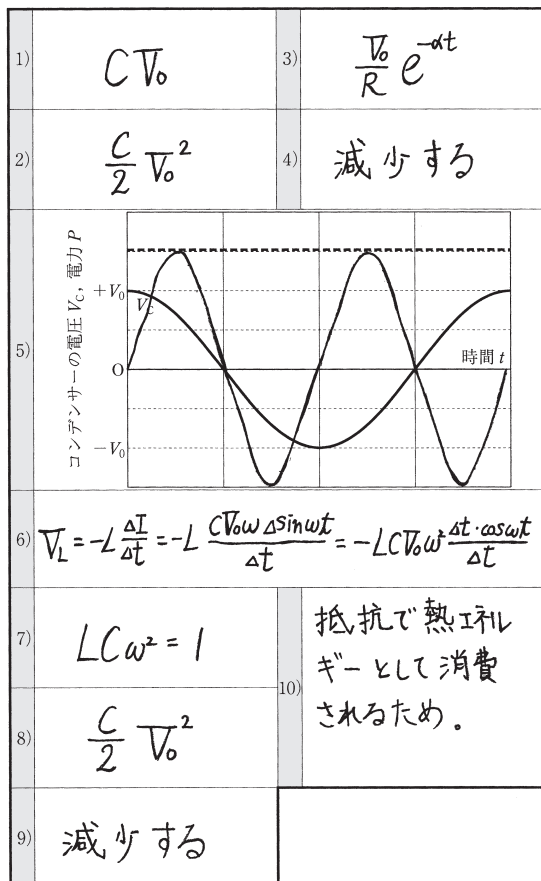 1) CV₀
2) C/2 V₀²
3) V₀/R e^{-αt}
4) 減少する
5)
コンデンサーの電圧 V_C, 電力 P
+V₀
V_C
O
−V₀
時間 t
6) V_L = −L ΔI/Δt = −L CV₀ω Δsinωt/Δt = −LCV₀ω² Δt·cosωt/Δt
7) LCω² = 1
8) C/2 V₀²
9) 減少する
10) 抵抗で熱エネル
ギーとして消費
されるため。